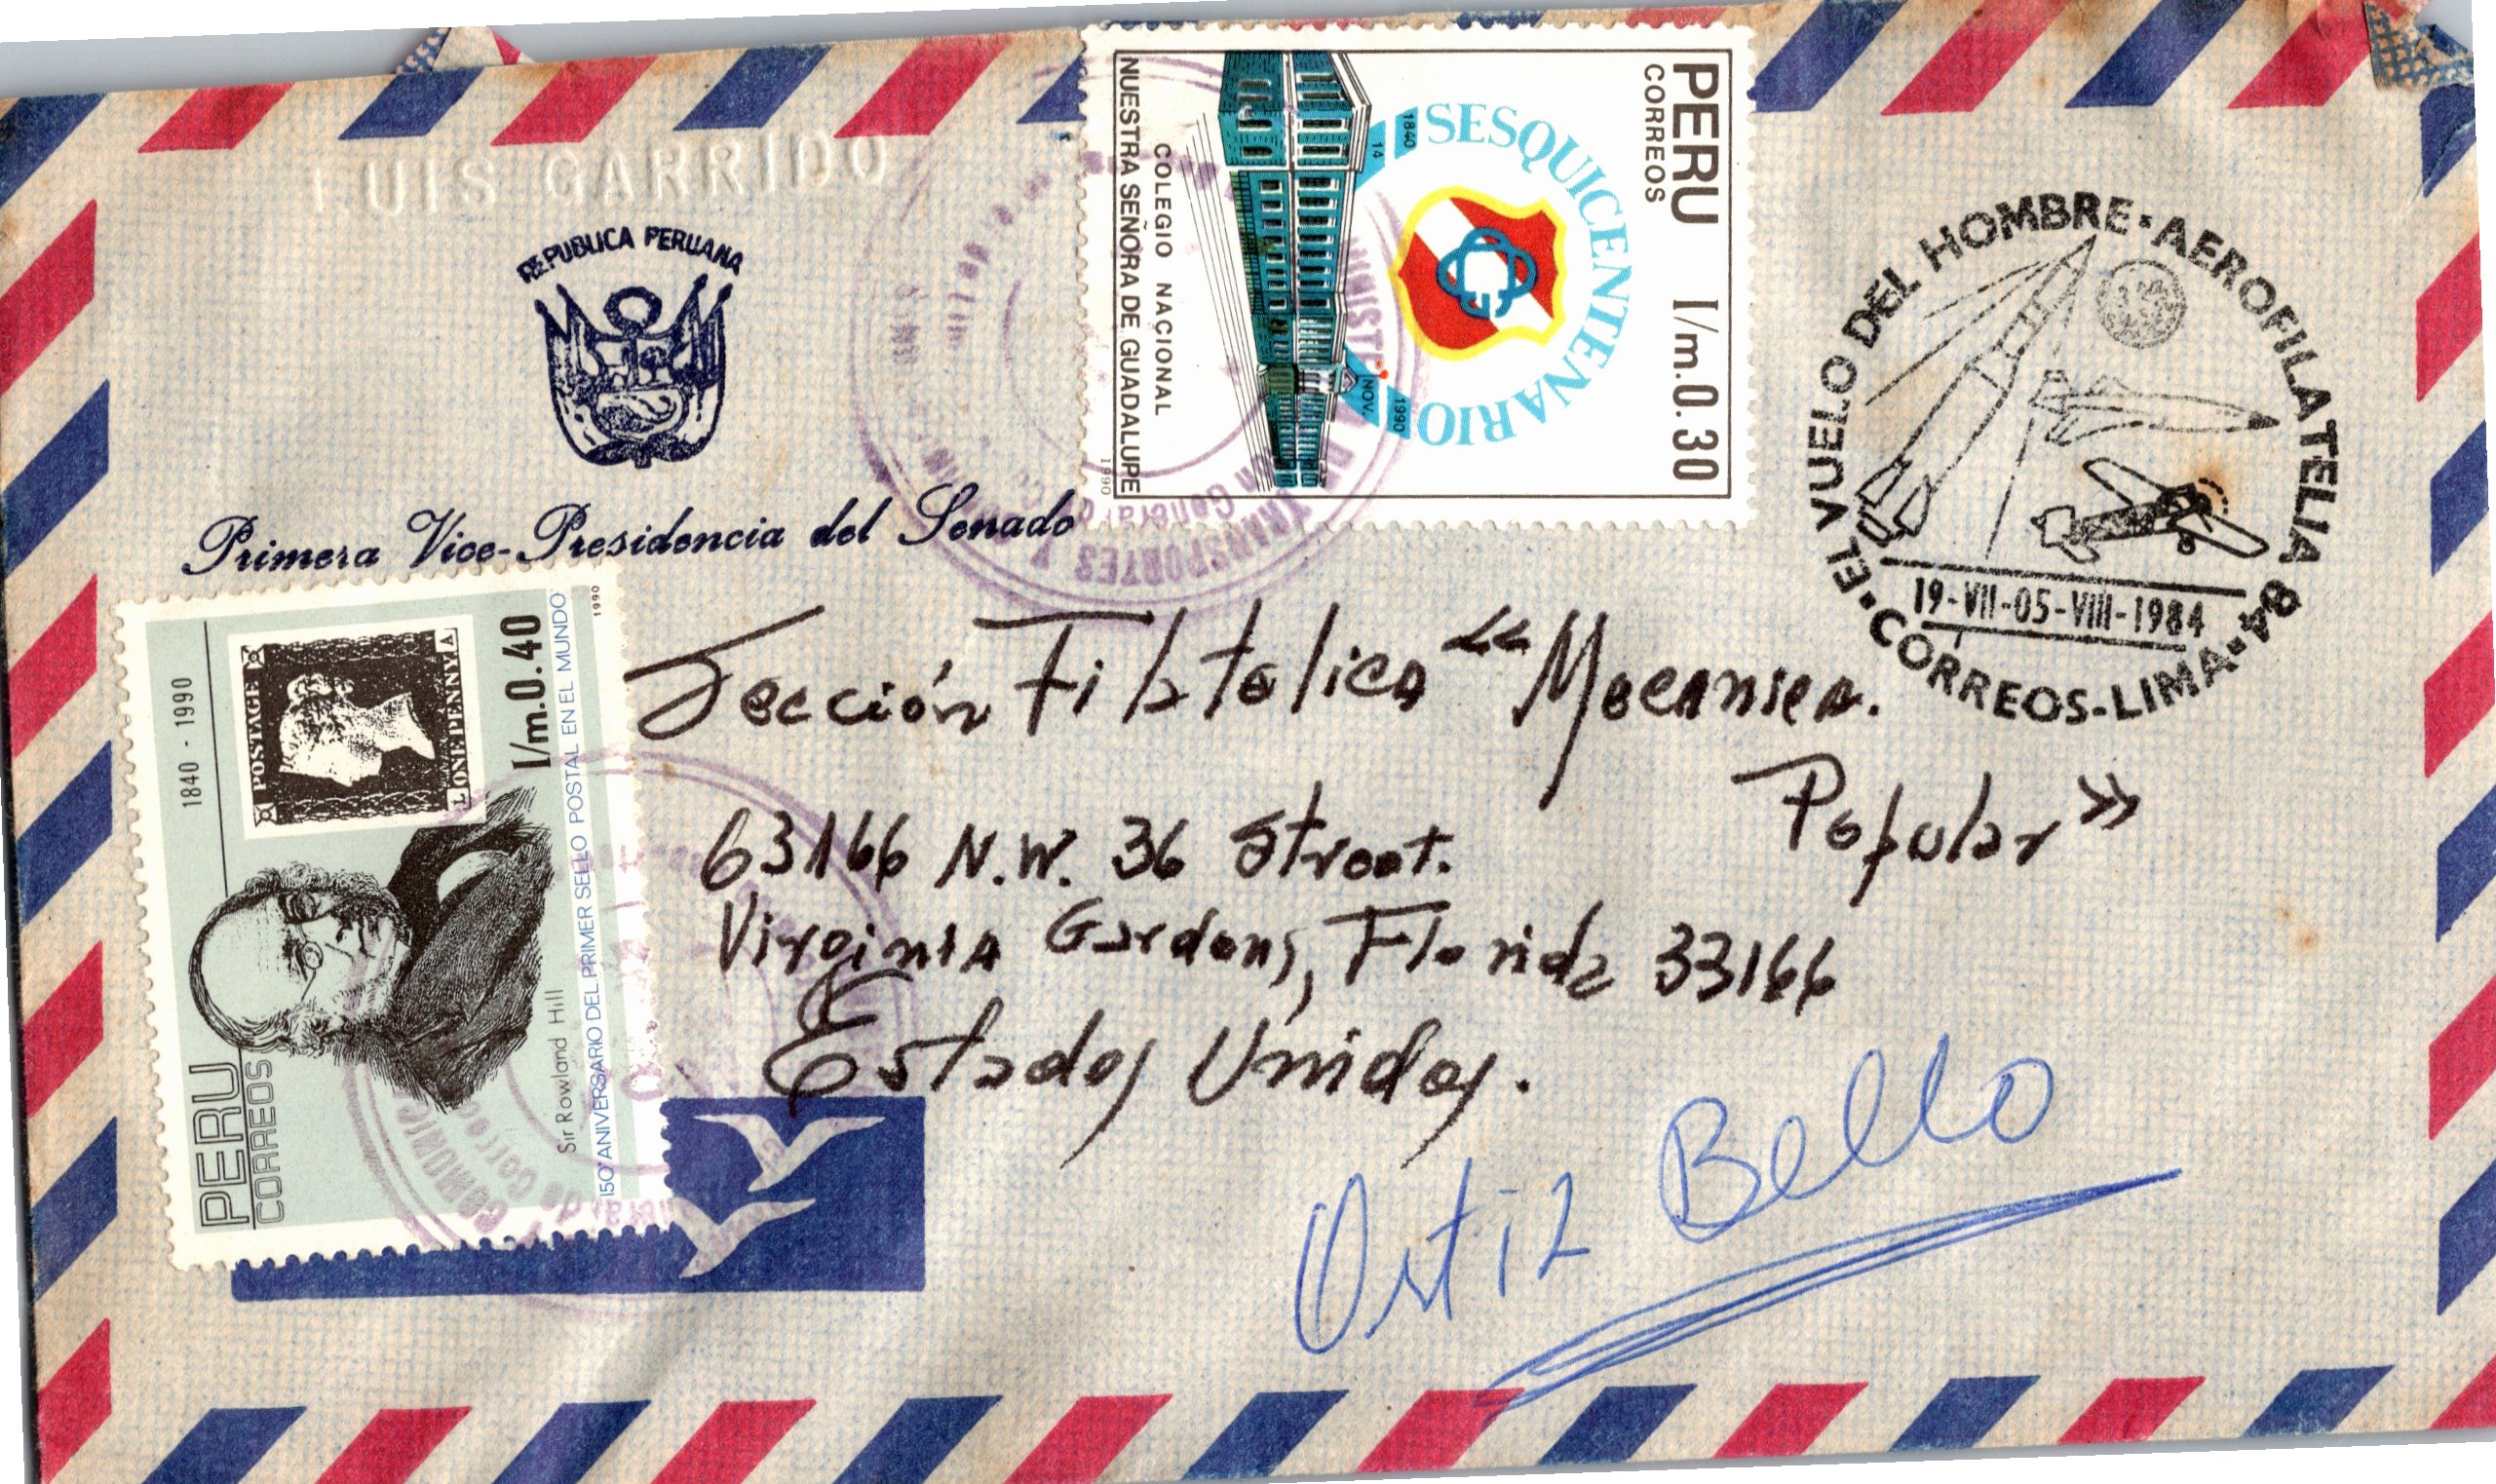 LUIS GARRIDO
REPUBLICA PERUANA
Primera Vice-Presidencia del Senado
PERU
CORREOS
I/m.0.30
SESQUICENTENARIO
1840
14
NOV.
1990
COLEGIO NACIONAL
NUESTRA SEÑORA DE GUADALUPE
1990
EL VUELO DEL HOMBRE · AEROFILATELIA 84 ·
19-VII-05-VIII-1984
CORREOS-LIMA
TRANSPORTES Y
1840 - 1990
POSTAGE
ONE PENNY
I/m.0.40
PERU
CORREOS
Sir Rowland Hill
150 ANIVERSARIO DEL PRIMER SELLO POSTAL EN EL MUNDO
1990
Sección Filatelica “Mecanica
Popular”
63166 N.W. 36 Street.
Virginia Gardens, Florida 33166
Estados Unidos.
Ortiz Bello